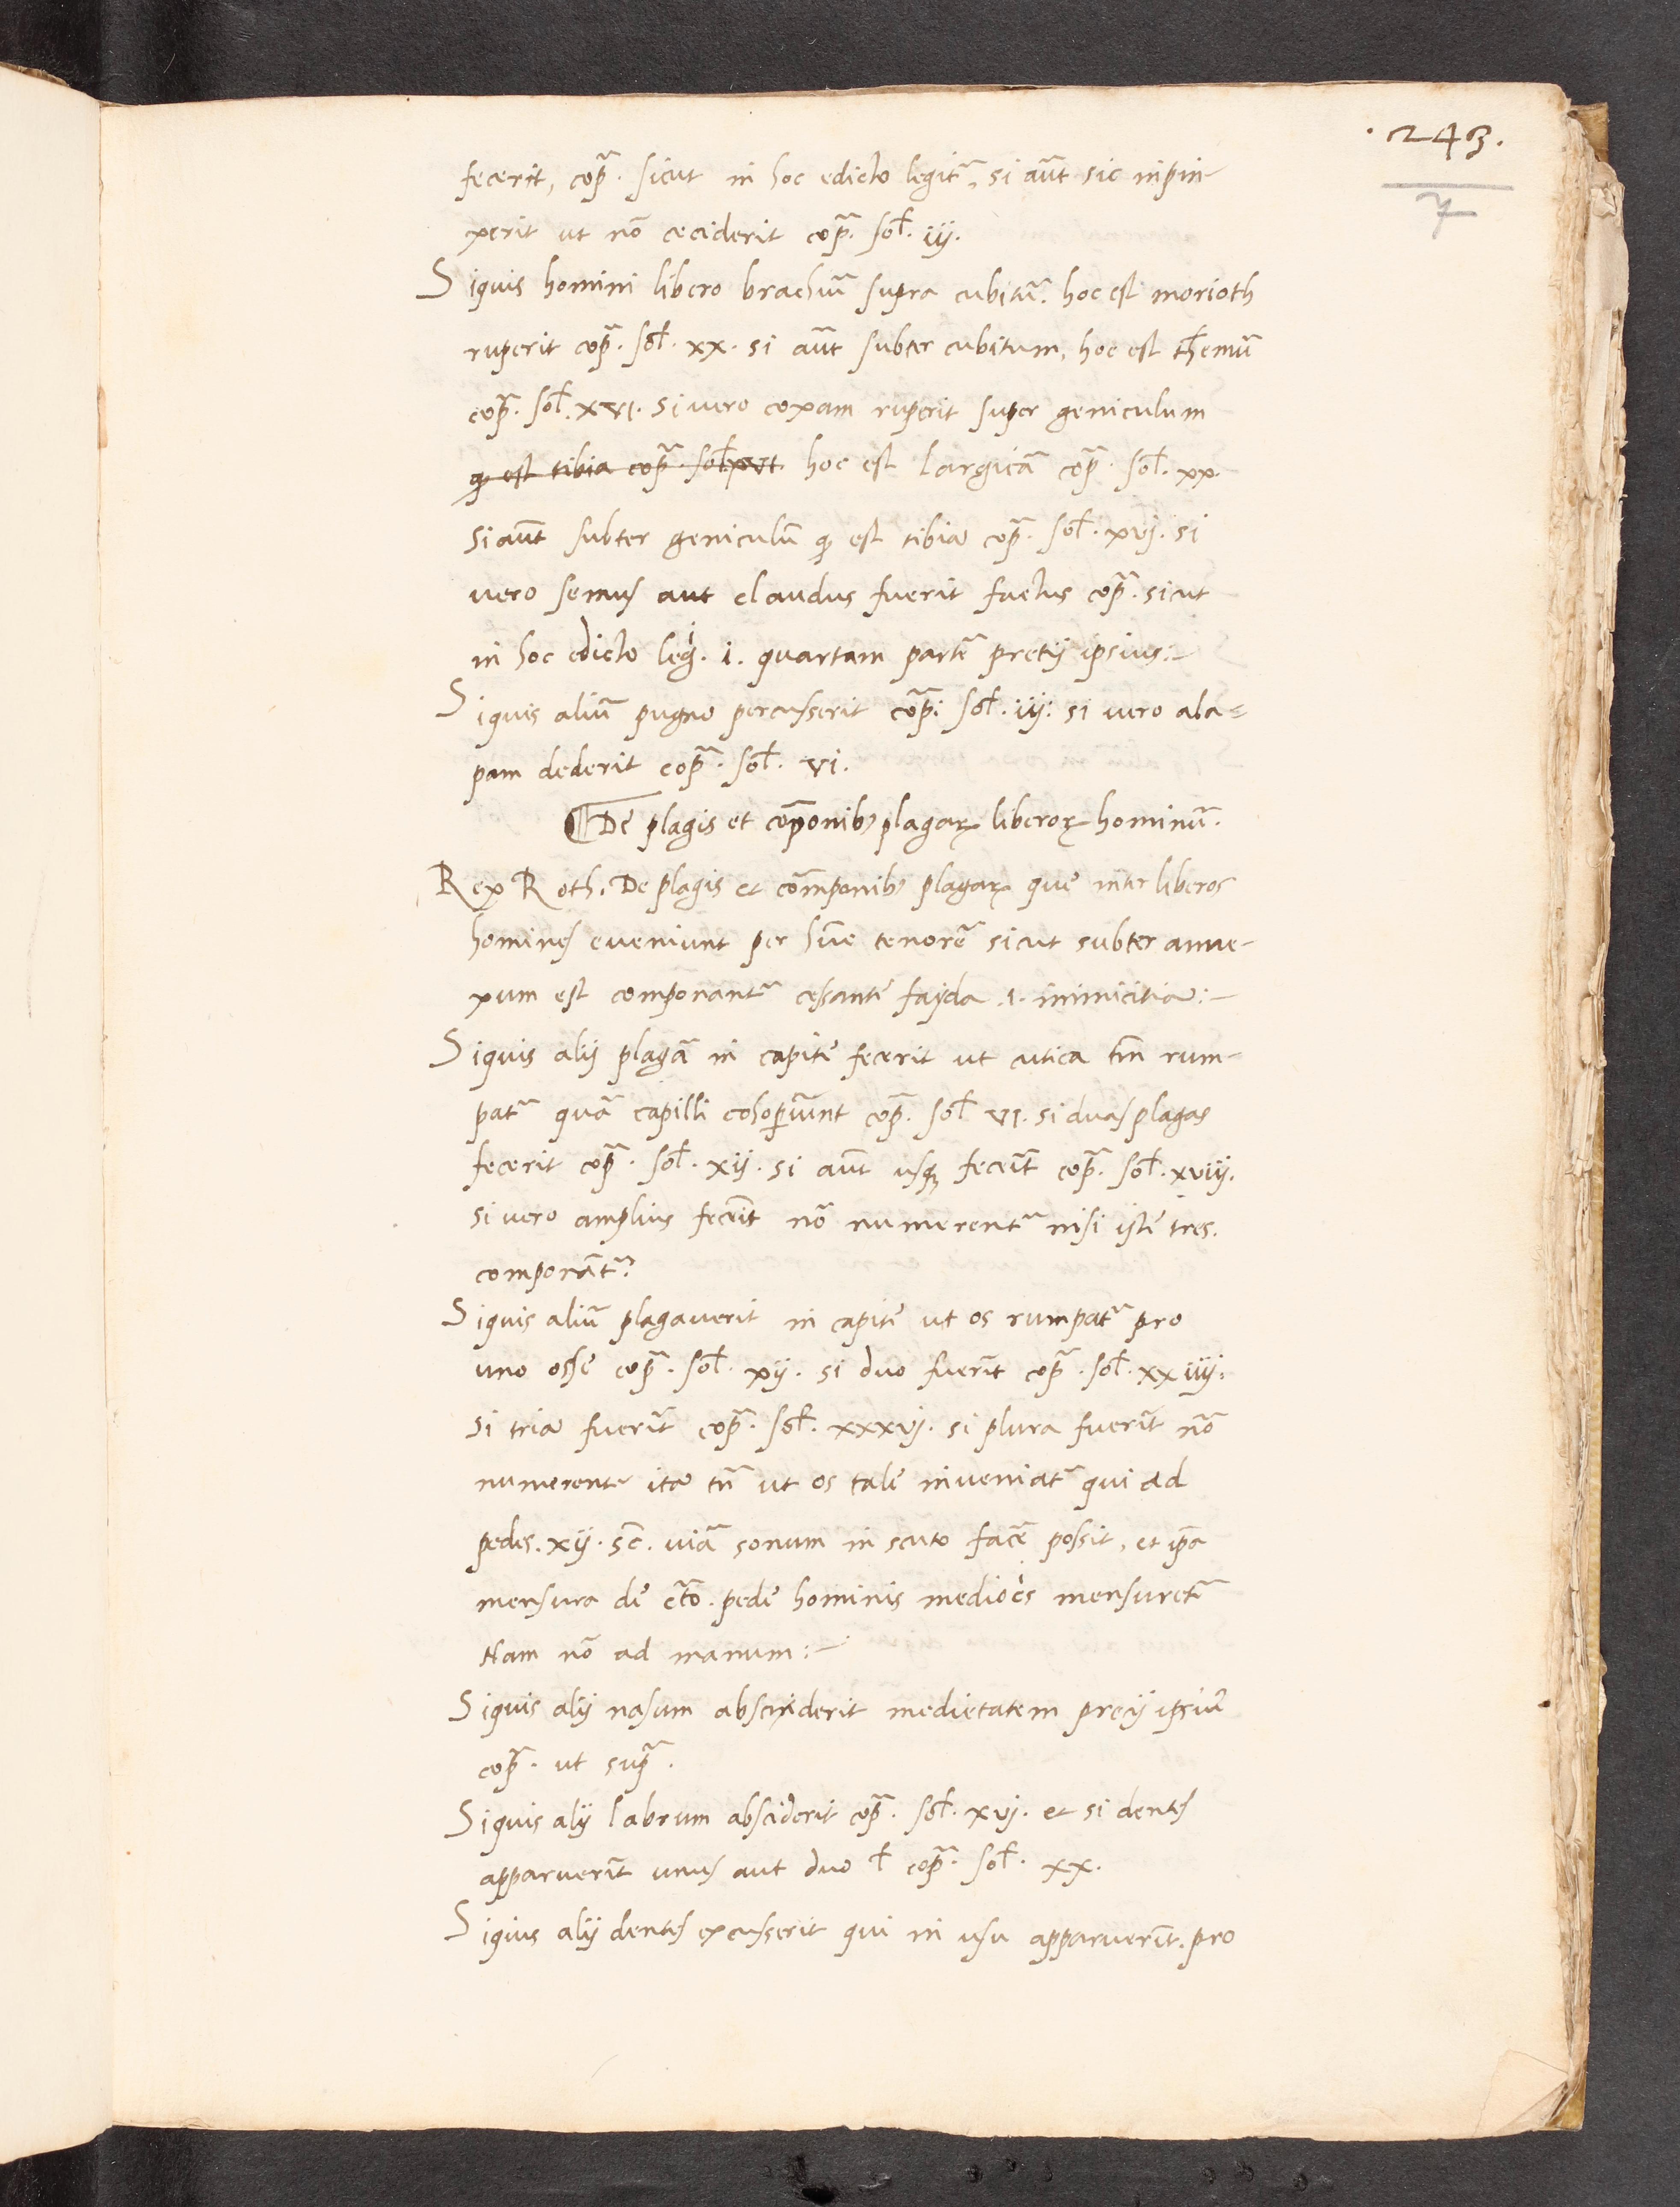 .243.
7
fecerit, cop̄a. sicut in hoc edicto legit᷑, si aūt sic inpin-
xerit ut nō ceciderit cop̄a. sol. iij.
Siquis homini libero brachiū supra cubitū. hoc est morioth
ruperit cop̄a. sol. xx. si aūt subter cubitum, hoc est themū
cop̄a. sol. xvi. si vero coxam ruperit super geniculum
qđ est tibia cop̄a. sol xvi. hoc est largicā cop̄a. sol. xx.
Si aūt subter geniculū qđ est tibia cop̄a. sol. xvj. si
vero semus aut claudus fuerit factus cop̄a. sicut
in hoc edicto leg̍. i. quartam partē pretij ipsius:-
Siquis aliū pugno percusserit cōp. sol. iij: si vero ala=
pam dederit cop̄a. sol. vi.
¶ De plagis et cōponibꝫ plagaꝝ liberoꝝ hominū.
Rex Roth. De plagis et cōmponibꝫ plagaꝝ que inter liberos
homines eveniunt per hūc tenorē sicut subter anne-
xum est componant᷑ cessante fayda .i. inimicitia:-
Siquis alij plagā in capite fecerit ut cutica tm̄ rum-
pat᷑ quā capilli cohoperiūnt cop̄a. sol vi. si duas plagas
fecerit cop̄a. sol. xij. si aūt usqꝫ fecerīt cop̄a. sol. xviij.
si vero amplius fecerīt nō numerent᷑ nisi iste tres.
componāt᷑.
Siquis aliū plagaverit in capite ut os rumpat᷑ pro
uno osse cop̄a. sol. xij. si duo fuerīt cop̄a. sol. xxiiij.
si tria fuerīt cop̄a. sol. xxxvj. si plura fuerīt nō
numerent᷑ ita tn̄ ut os tale inveniat᷑ qui ad
pedes. xij. sc̄. viā sonum in scuto facē possit, et ip̄a
mensura de c̄to. pede hominis mediocs mensuret᷑
Nam nō ad manum:-
Siquis alij nasum absciderit medietatem precij ipsius
cop̄a. ut sup̄a.
Siquis alij labrum absciderit cop̄a. sol. xvj. et si dentes
apparuerīt unus aut duo ł cop̄a. sol. xx.
Siquis alij dentes excusserit qui in usu apparuerīt. pro